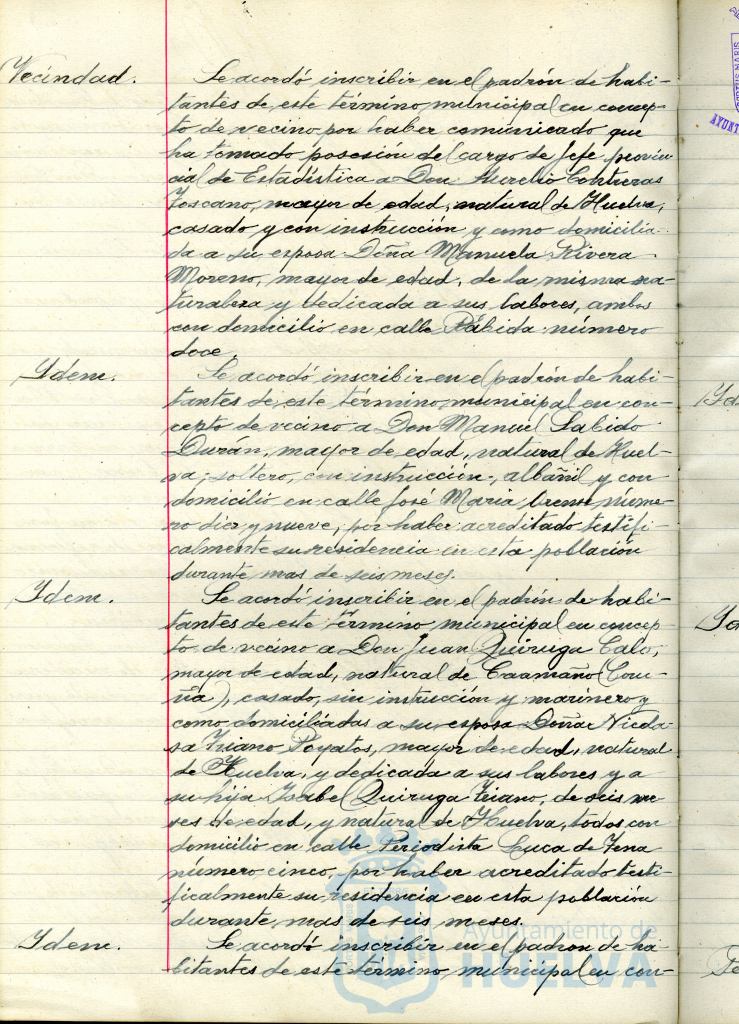 Vecindad.
Se acordó inscribir en el padrón de habi-
tantes de este término municipal en concep-
to de vecino por haber comunicado que
ha tomado posesión del cargo de Jefe provin-
cial de Estadística a Don Aurelio Contreras
Toscano, mayor de edad, natural de Huelva,
casado y con instrucción y como domicilia-
da a su esposa Doña Manuela Rivera
Moreno, mayor de edad, de la misma na-
turaleza y dedicada a sus labores, ambos
con domicilio en calle Rábida número
doce.
Ydem.
Se acordó inscribir en el padrón de habi-
tantes de este término municipal en con-
cepto de vecino a Don Manuel Salido
Durán, mayor de edad, natural de Huel-
va, soltero, con instrucción, albañil y con
domicilio en calle José Maria núme-
ro diez y nueve, por haber acreditado testifi-
calmente su residencia en esta población
durante mas de seis meses.
Ydem.
Se acordó inscribir en el padrón de habi-
tantes de este término municipal en concep-
to de vecino a Don Juan Quiruga Calo,
mayor de edad, natural de Caamaño (Coru-
ña), casado, sin instrucción y marinero y
como domiciliadas a su esposa Doña Nicola-
sa Triano Poyatos, mayor de edad, natural
de Huelva, y dedicada a sus labores y a
su hija Isabel Quiruga Triano, de seis me-
ses de edad, y natural de Huelva, todos con
domicilio en calle Periodista Luca de Tena
número cinco, por haber acreditado testi-
ficalmente su residencia en esta población
durante mas de seis meses.
Ydem.
Se acordó inscribir en el padron de ha-
bitantes de este término municipal en con-
Ayuntamiento de
HUELVA